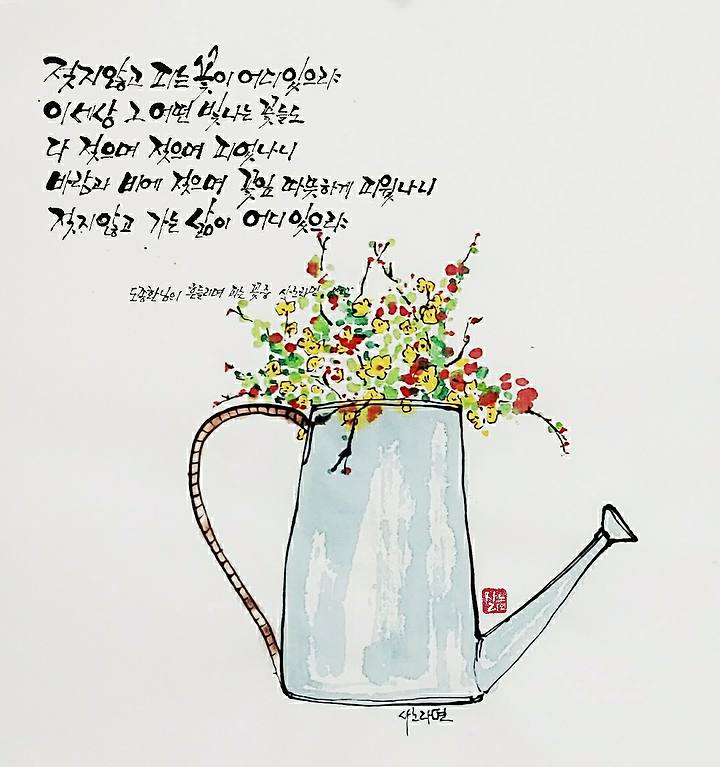 젖지않고 피는 꽃이 어디있으랴
이 세상 그 어떤 빛나는 꽃들도
다 젖으며 젖으며 피었나니
바람과 비에 젖으며 꽃잎 따뜻하게 피웠나니
젖지않고 가는 삶이 어디 있으랴
도종환님의 흔들리며 피는 꽃중